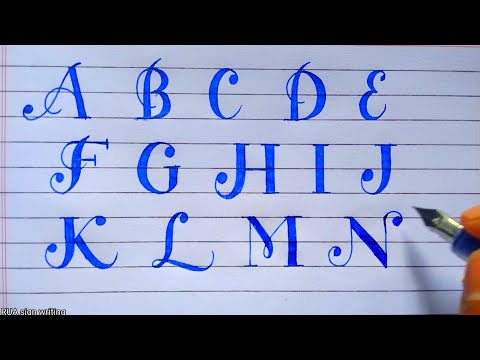 A B C D E
F G H I J
K L M N
RUA sign writing